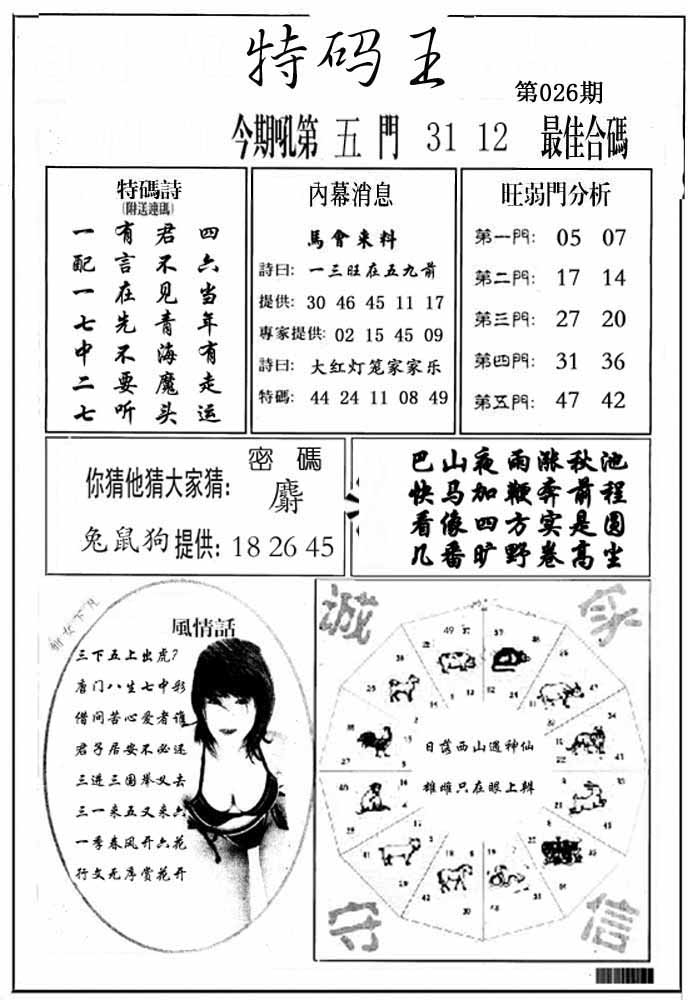 特码王
第026期
今期吼第 五 門 31 12 最佳合碼
特碼詩
(附送連碼)
四六当年有走运
君不见青海魔头
有言在先不要听
一配一七中二七
內幕消息
馬會来料
詩曰: 一三旺在五九前
提供: 30 46 45 11 17
專家提供: 02 15 45 09
詩曰: 大红灯笼家家乐
特碼: 44 24 11 08 49
旺弱門分析
第一門: 05 07
第二門: 17 14
第三門: 27 20
第四門: 31 36
第五門: 47 42
密碼
你猜他猜大家猜: 麝
兔鼠狗 提供: 18 26 45
巴山夜雨涨秋池
快马加鞭奔前程
看像四方实是圆
几番旷野卷高尘
風情話
三下五上出虎?
唐门八生七中彩
借问苦心爱者谁
君子居安不必迷
三进三围举义去
三一来五又来六
一季春风开六花
行文无序赏花开
诚
守
信
日落西山遇神仙
雄雌只在眼上辩
49
37